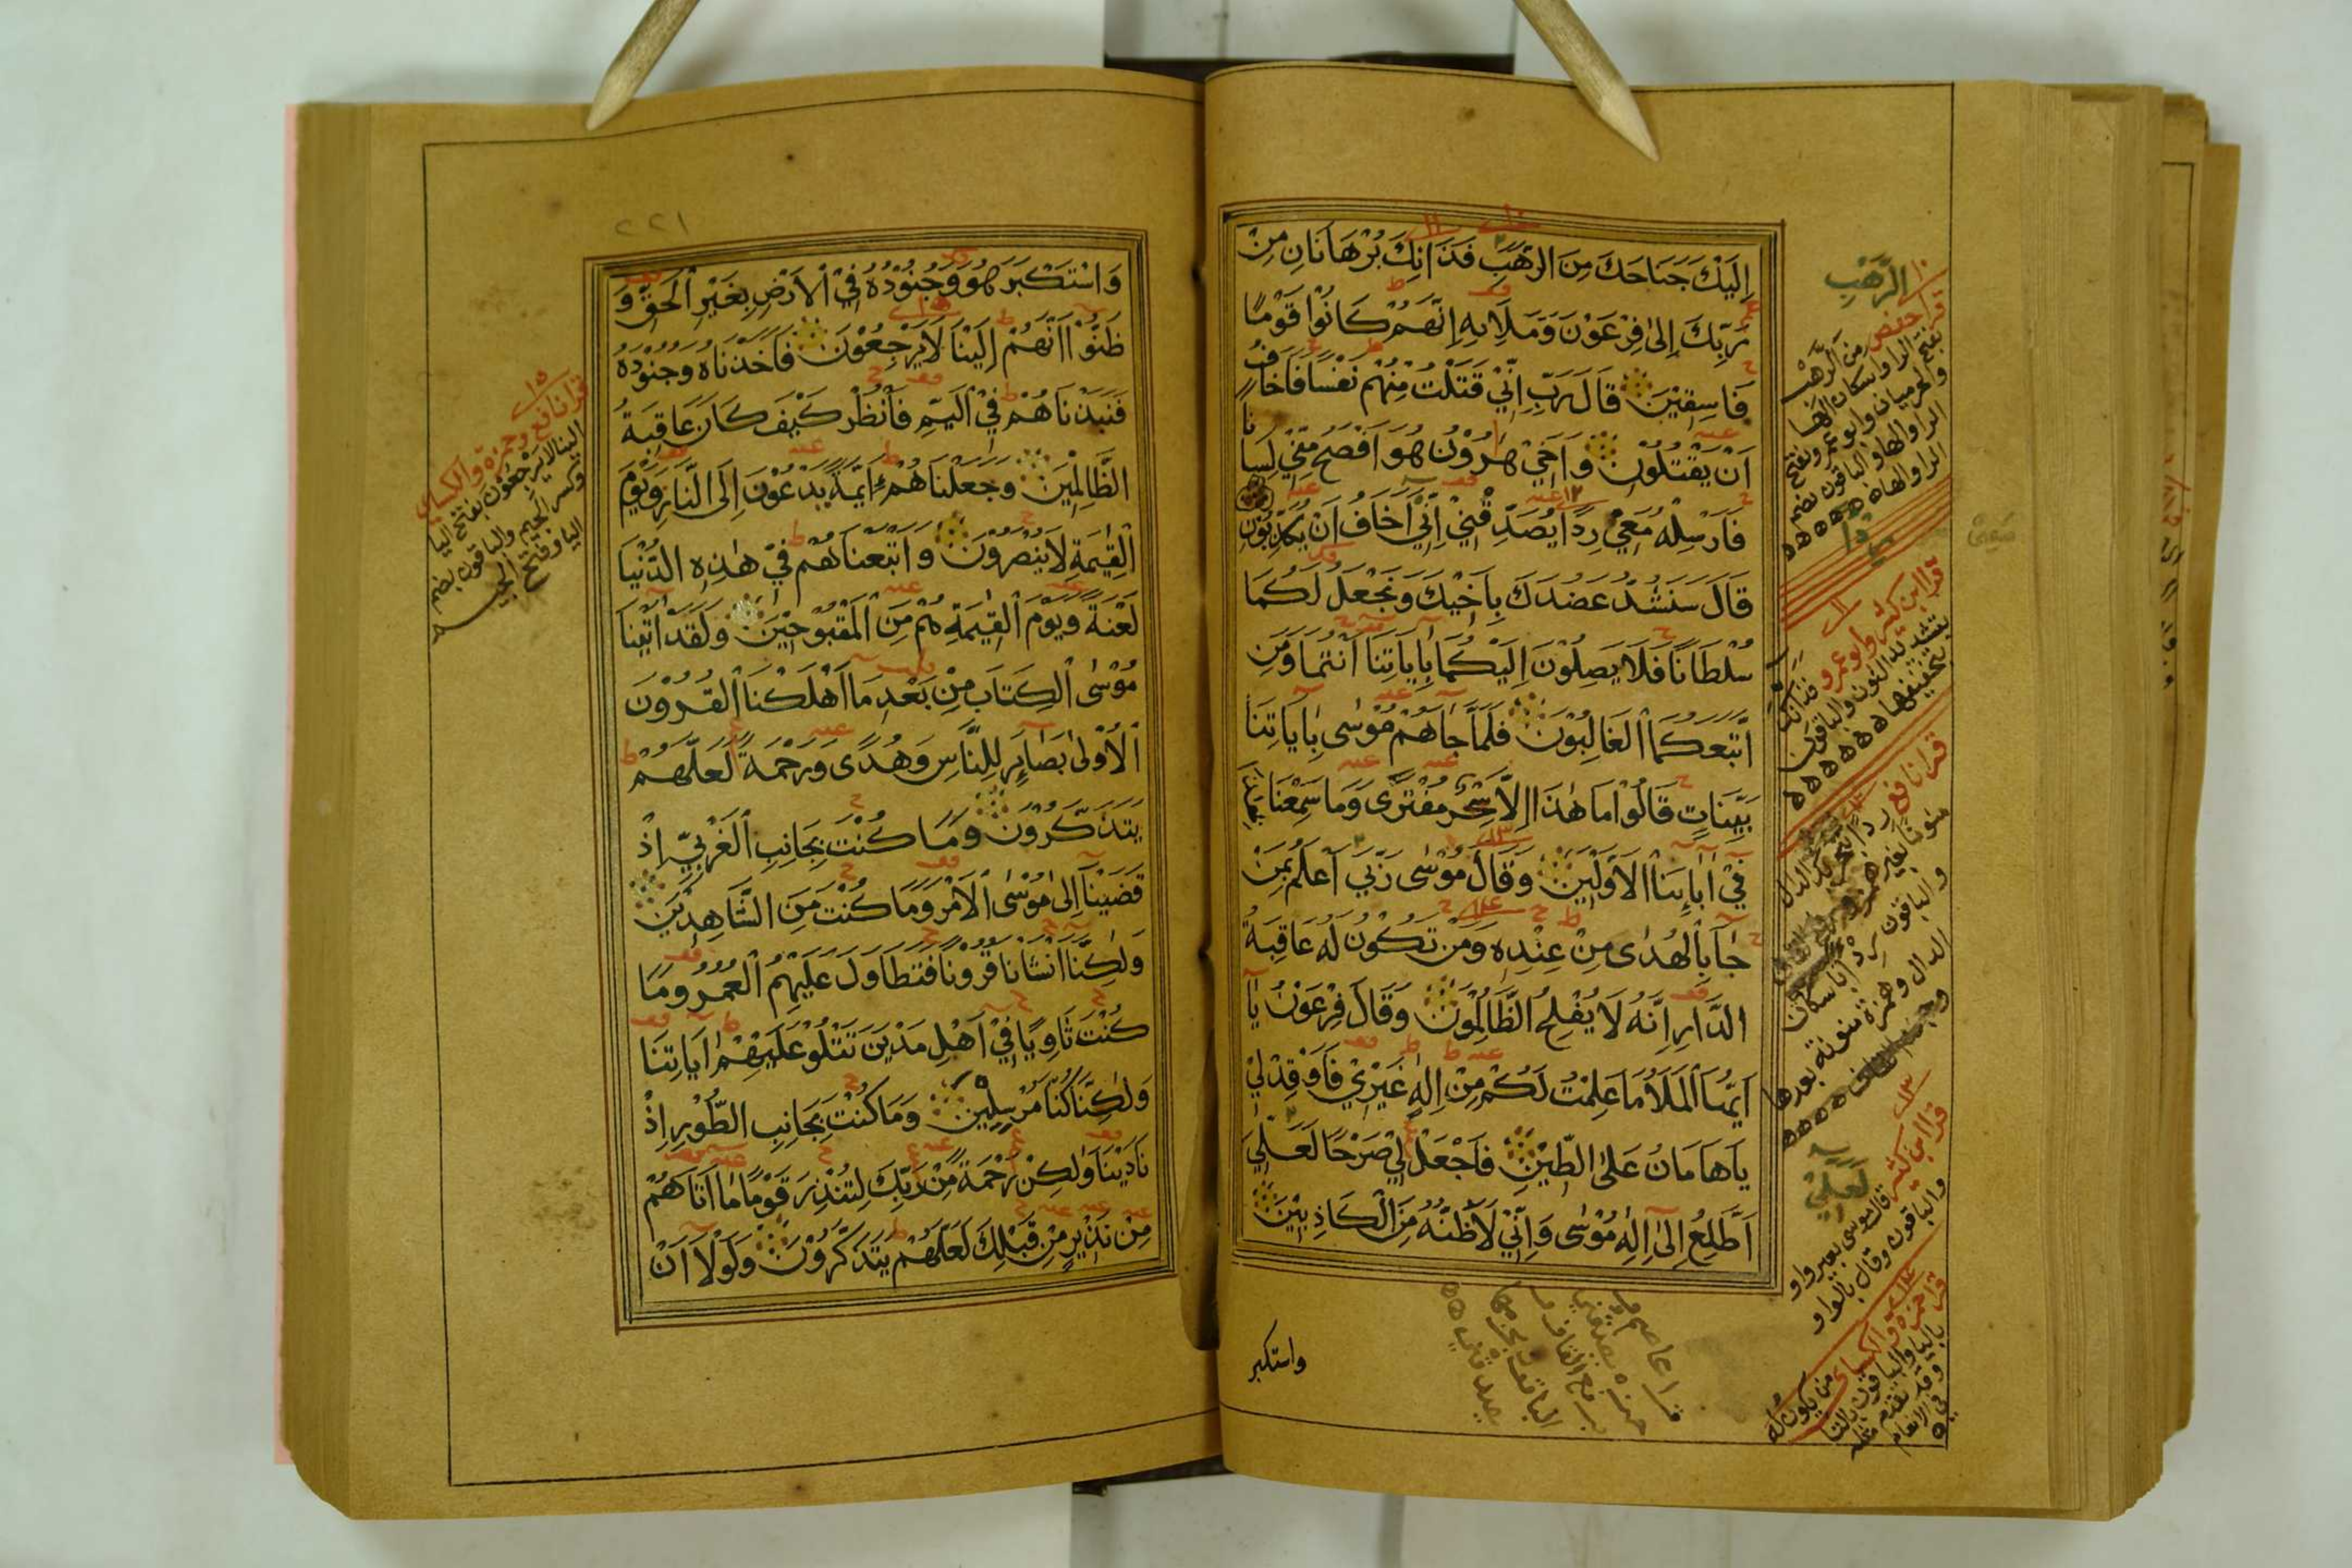 اِلَيْكَ جَنَاحَكَ مِنَ الرَّهَبِ فَذَانِكَ بُرْهَانَانِ مِنْ
رَبِّكَ اِلٰى فِرْعَوْنَ وَمَلَإِيهِ اِنَّهُمْ كَانُوْا قَوْمًا
فَاسِقِيْنَ قَالَ رَبِّ اِنِّيْ قَتَلْتُ مِنْهُمْ نَفْسًا فَاَخَافُ
اَنْ يَقْتُلُوْنِ وَاَخِيْ هٰرُوْنُ هُوَ اَفْصَحُ مِنِّيْ لِسَانًا
فَاَرْسِلْهُ مَعِيَ رِدْءًا يُصَدِّقْنِيْ اِنِّيْ اَخَافُ اَنْ يُكَذِّبُوْنِ
قَالَ سَنَشُدُّ عَضُدَكَ بِاَخِيْكَ وَنَجْعَلُ لَكُمَا
سُلْطَانًا فَلَا يَصِلُوْنَ اِلَيْكُمَا بِاٰيَاتِنَا اَنْتُمَا وَمَنِ
اتَّبَعَكُمَا الْغَالِبُوْنَ فَلَمَّا جَاهُمْ مُوْسٰى بِاٰيَاتِنَا
بَيِّنَاتٍ قَالُوْا مَا هٰذَا اِلَّا سِحْرٌ مُفْتَرًى وَمَا سَمِعْنَا بِهٰذَا
فِيْ اٰبَاۤئِنَا الْاَوَّلِيْنَ وَقَالَ مُوْسٰى رَبِّيْ اَعْلَمُ بِمَنْ
جَاۤ بِالْهُدٰى مِنْ عِنْدِهٖ وَمَنْ تَكُوْنُ لَهُ عَاقِبَةُ
الدَّارِ اِنَّهُ لَا يُفْلِحُ الظَّالِمُوْنَ وَقَالَ فِرْعَوْنُ يَا
اَيُّهَا الْمَلَاُ مَا عَلِمْتُ لَكُمْ مِنْ اِلٰهٍ غَيْرِيْ فَاَوْقِدْ لِيْ
يَاهَامَانُ عَلَى الطِّيْنِ فَاجْعَلْ لِيْ صَرْحًا لَعَلِّيَ
اَطَّلِعُ اِلٰى اِلٰهِ مُوْسٰى وَاِنِّيْ لَاَظُنُّهُ مِنَ الْكَاذِبِيْنَ
واستكبر
الرَّهْبِ
قرا حفص من الرَّهْب
بفتح الرا واسكان الها
والحرميان وابو عمرو بفتح
الرا والها والباقون بضم
الرا واسكان الها
قرا ابن كثير وابو عمرو فذانك
بتشديد النون والباقون
بتخفيفها
قرا نافع ردا
والباقون ردءا باسكان
الدال وهمزة منونة بعدها
لَعَلِّيْ
قرا ابن كثير قال موسى بغير واو
والباقون وقال بالواو
قرا حمزة والكسائي من يكون له
باليا والباقون بالتا
وقد تقدم مثله
في الانعام
قرا عاصم و
حمزة يصدقني
برفع القاف و
الباقون بجزمها
٢٢١
وَاسْتَكْبَرَ هُوَ وَجُنُوْدُهُ فِي الْاَرْضِ بِغَيْرِ الْحَقِّ وَ
ظَنُّوْا اَنَّهُمْ اِلَيْنَا لَا يَرْجِعُوْنَ فَاَخَذْنَاهُ وَجُنُوْدَهُ
فَنَبَذْنَاهُمْ فِي الْيَمِّ فَانْظُرْ كَيْفَ كَانَ عَاقِبَةُ
الظَّالِمِيْنَ وَجَعَلْنَاهُمْ اَئِمَّةً يَدْعُوْنَ اِلَى النَّارِ وَيَوْمَ
الْقِيٰمَةِ لَا يُنْصَرُوْنَ وَاَتْبَعْنَاهُمْ فِيْ هٰذِهِ الدُّنْيَا
لَعْنَةً وَيَوْمَ الْقِيٰمَةِ هُمْ مِنَ الْمَقْبُوْحِيْنَ وَلَقَدْ اٰتَيْنَا
مُوْسَى الْكِتَابَ مِنْ بَعْدِ مَا اَهْلَكْنَا الْقُرُوْنَ
الْاُوْلٰى بَصَاۤئِرَ لِلنَّاسِ وَهُدًى وَرَحْمَةً لَعَلَّهُمْ
يَتَذَكَّرُوْنَ وَمَا كُنْتَ بِجَانِبِ الْغَرْبِيِّ اِذْ
قَضَيْنَا اِلٰى مُوْسَى الْاَمْرَ وَمَا كُنْتَ مِنَ الشَّاهِدِيْنَ
وَلٰكِنَّا اَنْشَانَا قُرُوْنًا فَتَطَاوَلَ عَلَيْهِمُ الْعُمُرُ وَمَا
كُنْتَ ثَاوِيًا فِيْ اَهْلِ مَدْيَنَ تَتْلُوْ عَلَيْهِمْ اٰيَاتِنَا
وَلٰكِنَّا كُنَّا مُرْسِلِيْنَ وَمَا كُنْتَ بِجَانِبِ الطُّوْرِ اِذْ
نَادَيْنَا وَلٰكِنْ رَحْمَةً مِنْ رَبِّكَ لِتُنْذِرَ قَوْمًا مَا اَتَاهُمْ
مِنْ نَذِيْرٍ مِنْ قَبْلِكَ لَعَلَّهُمْ يَتَذَكَّرُوْنَ وَلَوْلَا اَنْ
١٥
قرا نافع وحمزة والكسائي
الينا لا يرجعون بفتح اليا
وكسر الجيم والباقون بضم
اليا وفتح الجيم